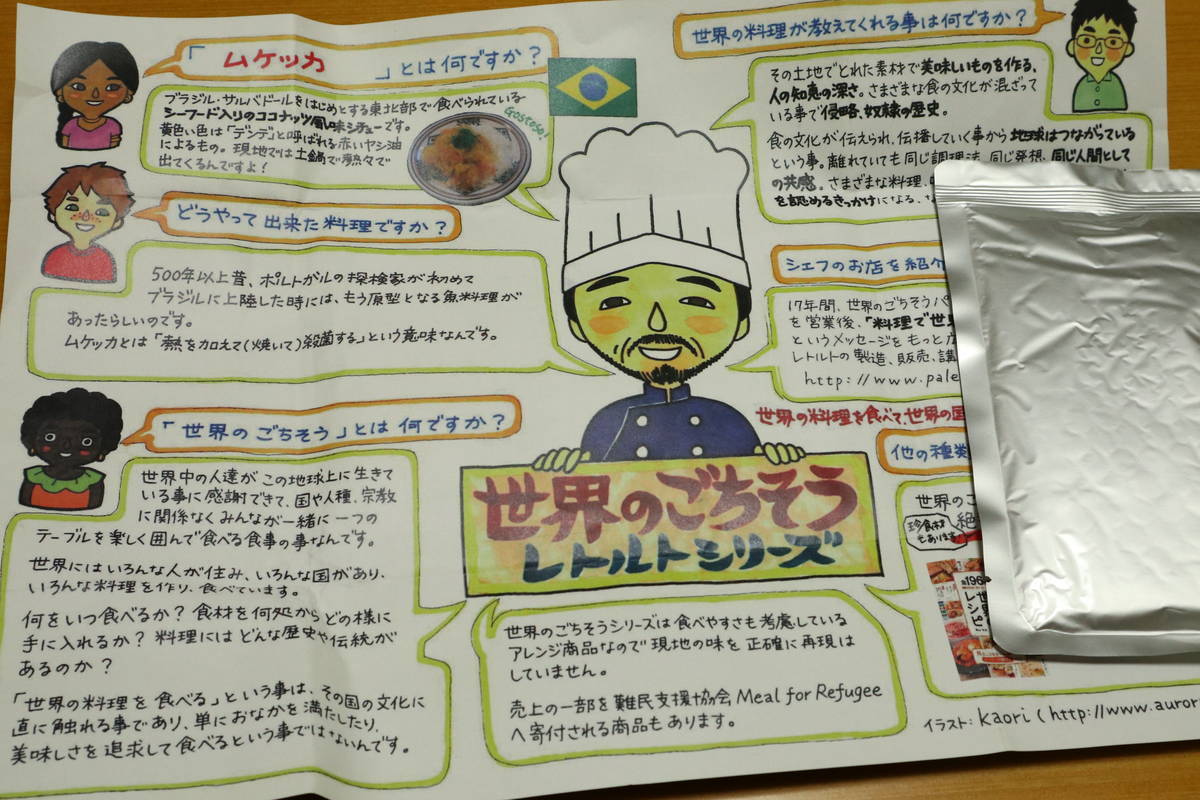 「ムケッカ」とは何ですか?
ブラジル・サルバドールをはじめとする東北部で食べられている
シーフード入りのココナッツ風味シチューです。
黄色い色は「デンデ」と呼ばれる赤いヤシ油
によるもの。現地では土鍋で熱々で
出てくるんですよ!
Gostoso!
どうやって出来た料理ですか?
500年以上昔、ポルトガルの探検家が初めて
ブラジルに上陸した時には、もう原型となる魚料理が
あったらしいのです。
ムケッカとは「熱を加えて(焼いて)殺菌する」という意味なんです。
「世界のごちそう」とは何ですか?
世界中の人達がこの地球上に生きて
いる事に感謝できて、国や人種、宗教
に関係なくみんなが一緒に一つの
テーブルを楽しく囲んで食べる食事の事なんです。
世界にはいろんな人が住み、いろんな国があり、
いろんな料理を作り、食べています。
何をいつ食べるか?食材を何処からどの様に
手に入れるか?料理にはどんな歴史や伝統が
あるのか?
「世界の料理を食べる」という事は、その国の文化に
直に触れる事であり、単におなかを満たしたり、
美味しさを追求して食べるという事ではないんです。
世界の料理が教えてくれる事は何ですか?
その土地でとれた素材で美味しいものを作る、
人の知恵の深さ。さまざまな食の文化が混ざって
いる事で侵略、奴隷の歴史。
食の文化が伝えられ、伝播していく事から地球はつながっている
という事。離れていても同じ調理法、同じ発想、同じ人間として
の共感。さまざまな料理、
を認めるきっかけになる、
シェフのお店を紹介
17年間、世界のごちそうパ
を営業後、「料理で世界
というメッセージをもっと広
レトルトの製造、販売、講
http://www.pale
世界の料理を食べて、世界の国
他の種類
世界のご
珍食材
もあります
絶
全196
世界
レシピ
世界のごちそう
レトルトシリーズ
世界のごちそうシリーズは食べやすさも考慮している
アレンジ商品なので現地の味を正確に再現は
していません。
売上の一部を難民支援協会 Meal for Refugee
へ寄付される商品もあります。
イラスト:kaori(http://www.auror